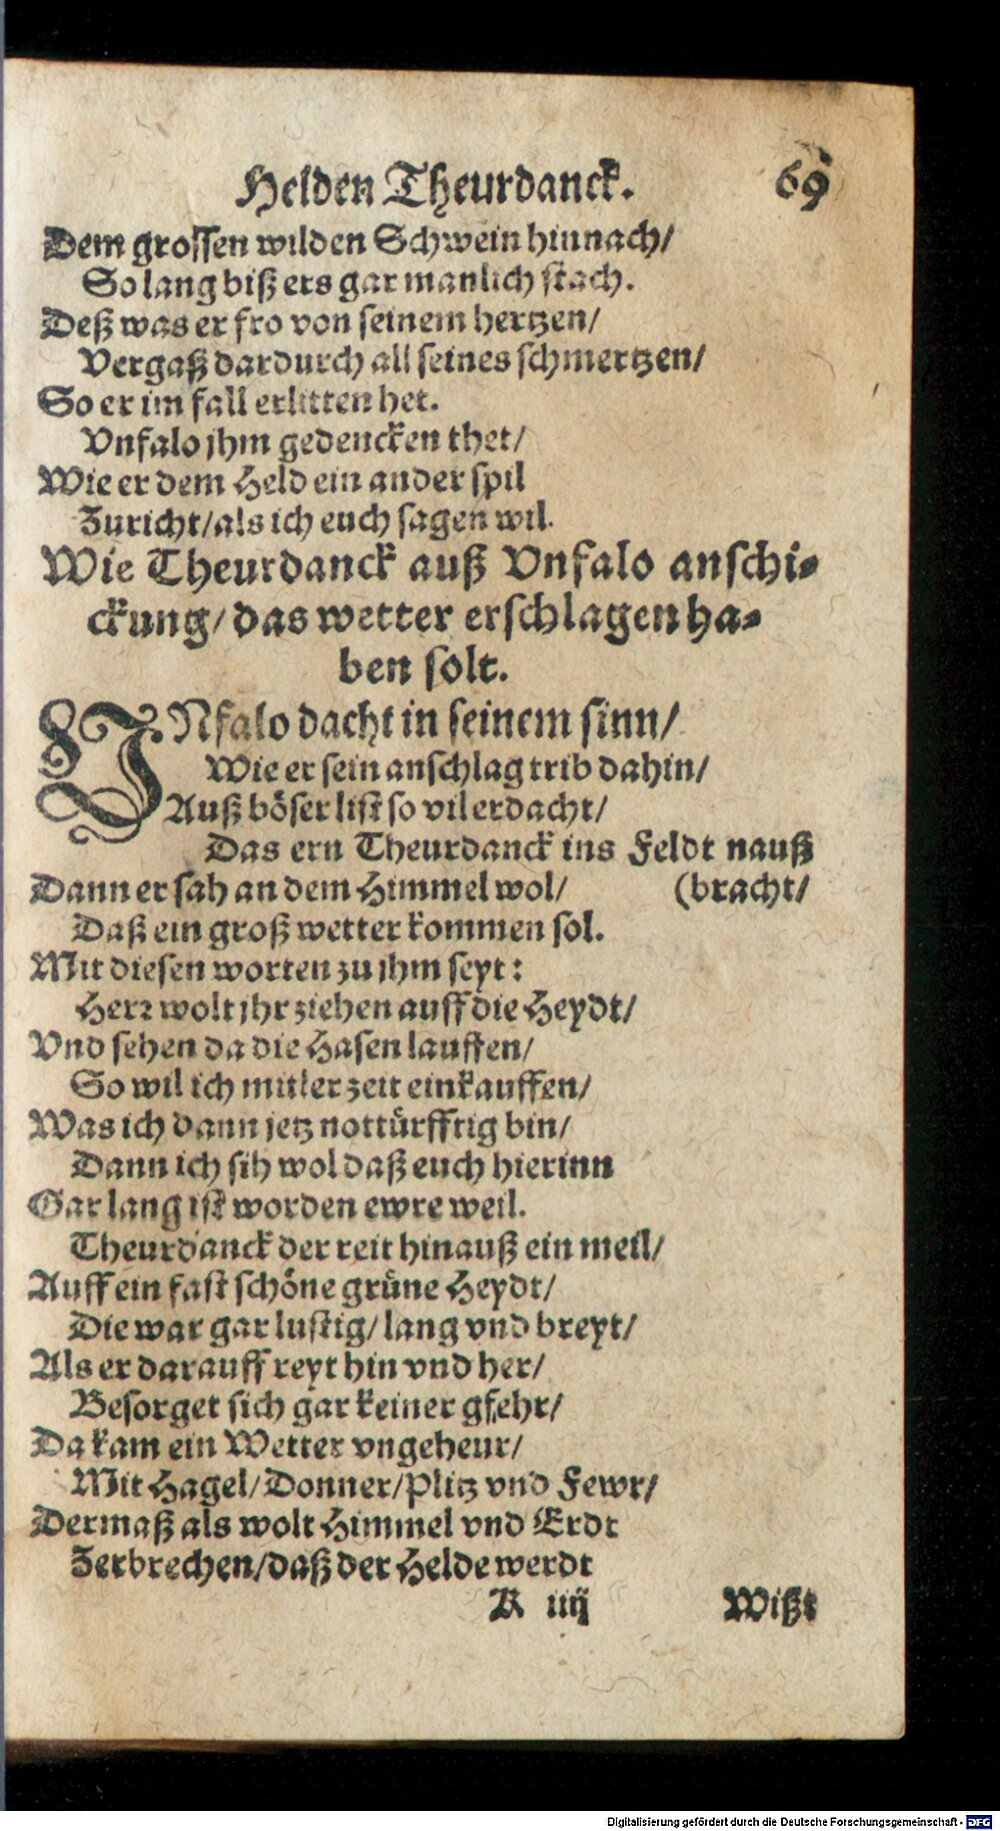 Helden Theurdanck. 69
Dem grossen wilden Schwein hinnach/
So lang biß ers gar manlich stach.
Deß was er fro von seinem hertzen/
Vergaß dardurch all seines schmertzen/
So er im fall erlitten het.
Vnfalo jhm gedencken thet/
Wie er dem Held ein ander spil
Zuricht/als ich euch sagen wil.
Wie Theurdanck auß Vnfalo anschi-
ckung/ das wetter erschlagen ha-
ben solt.
VNfalo dacht in seinem sinn/
Wie er sein anschlag trib dahin/
Auß böser list so vil erdacht/
Das ern Theurdanck ins Feldt nauß
Dann er sah an dem Himmel wol/ (bracht/
Daß ein groß wetter kommen sol.
Mit diesen worten zu jhm seyt:
Herr wolt jhr ziehen auff die Heydt/
Vnd sehen da die Hasen lauffen/
So wil ich mitler zeit einkauffen/
Was ich dann jetz nottürfftig bin/
Dann ich sih wol daß euch hierinn
Gar lang ist worden ewre weil.
Theurdanck der reit hinauß ein meil/
Auff ein fast schöne grüne Heydt/
Die war gar lustig/ lang vnd breyt/
Als er darauff reyt hin vnd her/
Besorget sich gar keiner gfehr/
Da kam ein Wetter vngeheur/
Mit Hagel/ Donner/ Plitz vnd Fewr/
Dermaß als wolt Himmel vnd Erdt
Zerbrechen/daß der Helde werdt
K iiij Wißt
Digitalisierung gefördert durch die Deutsche Forschungsgemeinschaft - DFG